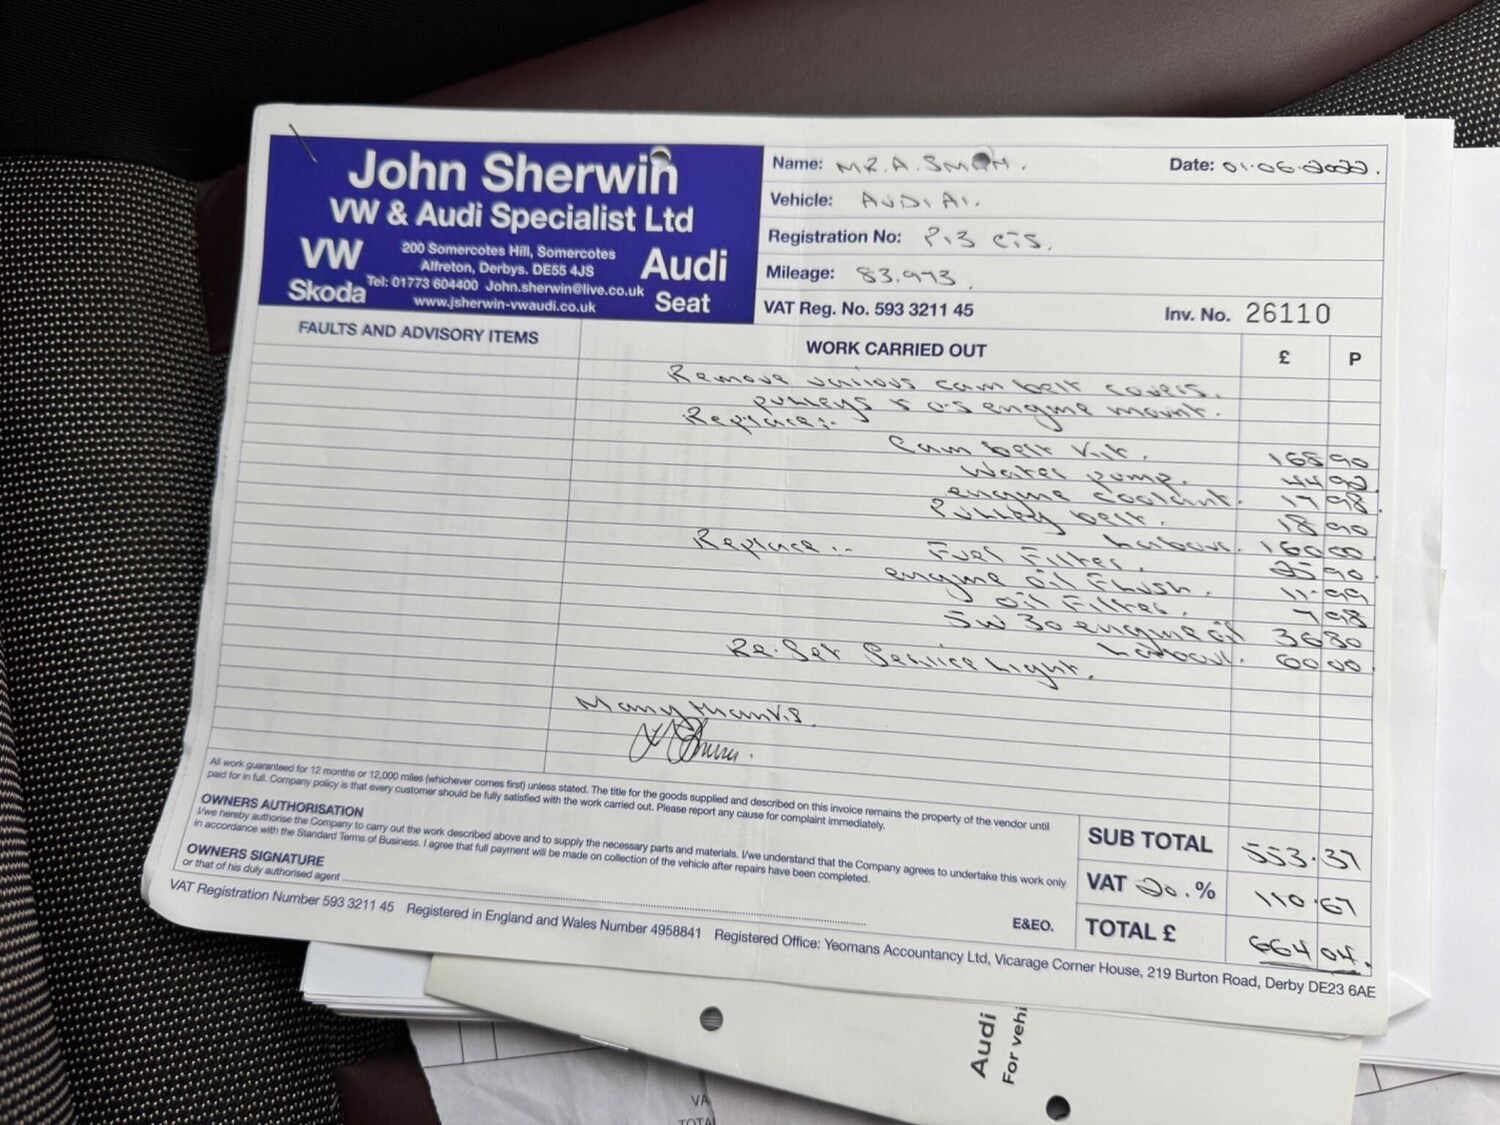 John Sherwin
VW & Audi Specialist Ltd
VW
Audi
Skoda
Seat
200 Somercotes Hill, Somercotes
Alfreton, Derbys. DE55 4JS
Tel: 01773 604400 John.sherwin@live.co.uk
www.jsherwin-vwaudi.co.uk
Name: MR. A.
Date: 01.06.2022.
Vehicle: AUDI A1.
Registration No:
Mileage: 83.973.
VAT Reg. No. 593 3211 45
Inv. No. 26110
FAULTS AND ADVISORY ITEMS
WORK CARRIED OUT
£ P
Remove various cam belt covers.
pulleys & o-s engine mount.
Replace:-
Cam belt kit. 168 90
Water pump. 44 92
engine coolant. 17 98.
Pulley belt. 18 90
Labour. 160 00
Replace:- Fuel Filter. 25 90
engine oil Flush. 11-99
oil Filter. 7 98
5W 30 engine oil 36 80
Labour. 60 00
Re-Set Service Light.
Many thanks.
All work guaranteed for 12 months or 12,000 miles (whichever comes first) unless stated. The title for the goods supplied and described on this invoice remains the property of the vendor until
paid for in full. Company policy is that every customer should be fully satisfied with the work carried out. Please report any cause for complaint immediately.
OWNERS AUTHORISATION
I/we hereby authorise the Company to carry out the work described above and to supply the necessary parts and materials. I/we understand that the Company agrees to undertake this work only
in accordance with the Standard Terms of Business. I agree that full payment will be made on collection of the vehicle after repairs have been completed.
OWNERS SIGNATURE
or that of his duly authorised agent
E&EO.
SUB TOTAL 553.37
VAT 20.% 110.67
TOTAL £ 664 04.
VAT Registration Number 593 3211 45 Registered in England and Wales Number 4958841 Registered Office: Yeomans Accountancy Ltd, Vicarage Corner House, 219 Burton Road, Derby DE23 6AE
Audi
For vehi
VA
TOTA